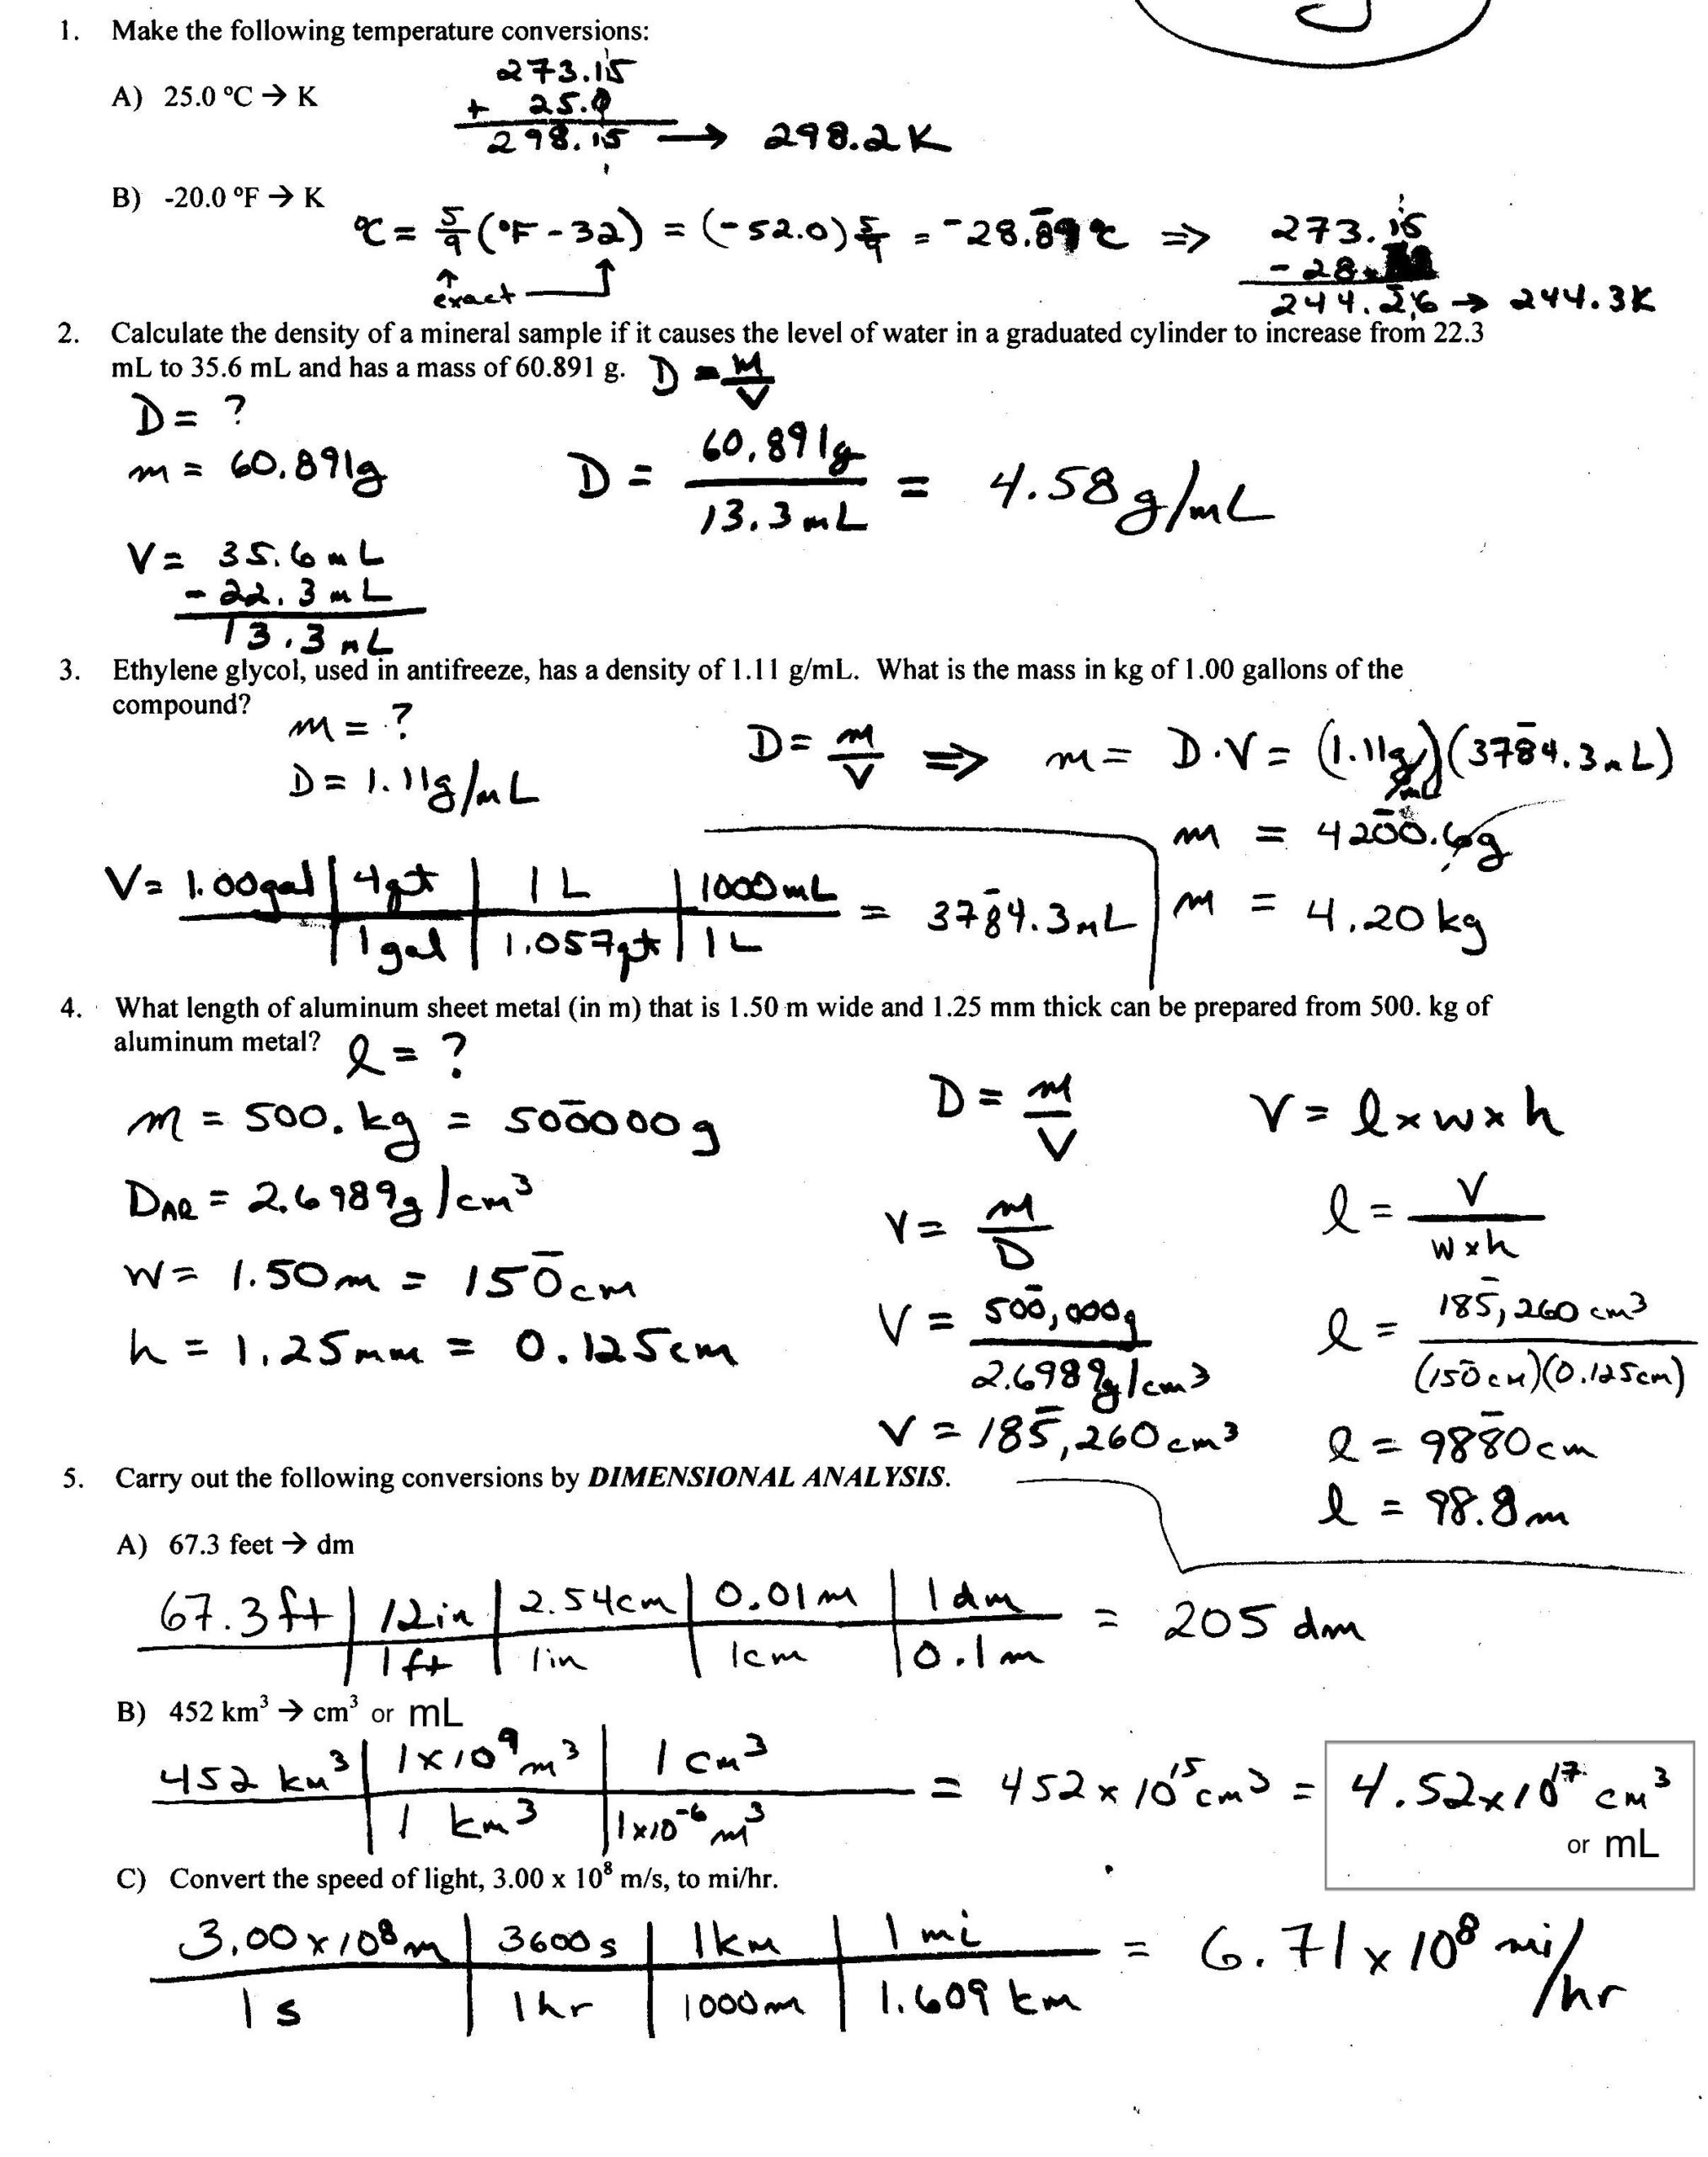 1. Make the following temperature conversions:
273.15
A) 25.0 ºC → K
+ 25.0
298.15 → 298.2K
B) -20.0 ºF → K
°C = 5/9 (°F - 32) = (-52.0) 5/9 = -28.89°C ⇒ 273.15
exact
- 28.
244.26 → 244.3K
2. Calculate the density of a mineral sample if it causes the level of water in a graduated cylinder to increase from 22.3
mL to 35.6 mL and has a mass of 60.891 g. D = m/V
D = ?
m = 60.891g
D = 60.891g / 13.3 mL = 4.58 g/mL
V = 35.6 mL
- 22.3 mL
13.3 mL
3. Ethylene glycol, used in antifreeze, has a density of 1.11 g/mL. What is the mass in kg of 1.00 gallons of the
compound?
m = ?
D = 1.11g/mL
D = m/V ⇒ m = D·V = (1.11g/mL)(3784.3mL)
m = 4200.6g
V = 1.00gal | 4qt | 1 L | 1000mL
1gal | 1.057qt | 1 L
= 3784.3mL
m = 4.20 kg
4. What length of aluminum sheet metal (in m) that is 1.50 m wide and 1.25 mm thick can be prepared from 500. kg of
aluminum metal? l = ?
m = 500. kg = 500000g
D = m/V
V = l x w x h
DAl = 2.6989g/cm³
V = m/D
l = V / w x h
w = 1.50m = 150cm
V = 500,000g / 2.6989g/cm³
l = 185,260 cm³ / (150cm)(0.125cm)
h = 1.25mm = 0.125cm
V = 185,260cm³
l = 9880cm
l = 98.8m
5. Carry out the following conversions by DIMENSIONAL ANALYSIS.
A) 67.3 feet → dm
67.3ft | 12in | 2.54cm | 0.01m | 1dm
1ft | 1in | 1cm | 0.1m
= 205 dm
B) 452 km³ → cm³ or mL
452 km³ | 1x10⁹m³ | 1 cm³
1 km³ | 1x10⁻⁶m³
= 452 x 10¹⁵cm³ = 4.52x10¹⁷ cm³
or mL
C) Convert the speed of light, 3.00 x 10⁸ m/s, to mi/hr.
3.00x10⁸m | 3600s | 1km | 1mi
1s | 1hr | 1000m | 1.609 km
= 6.71 x 10⁸ mi/hr